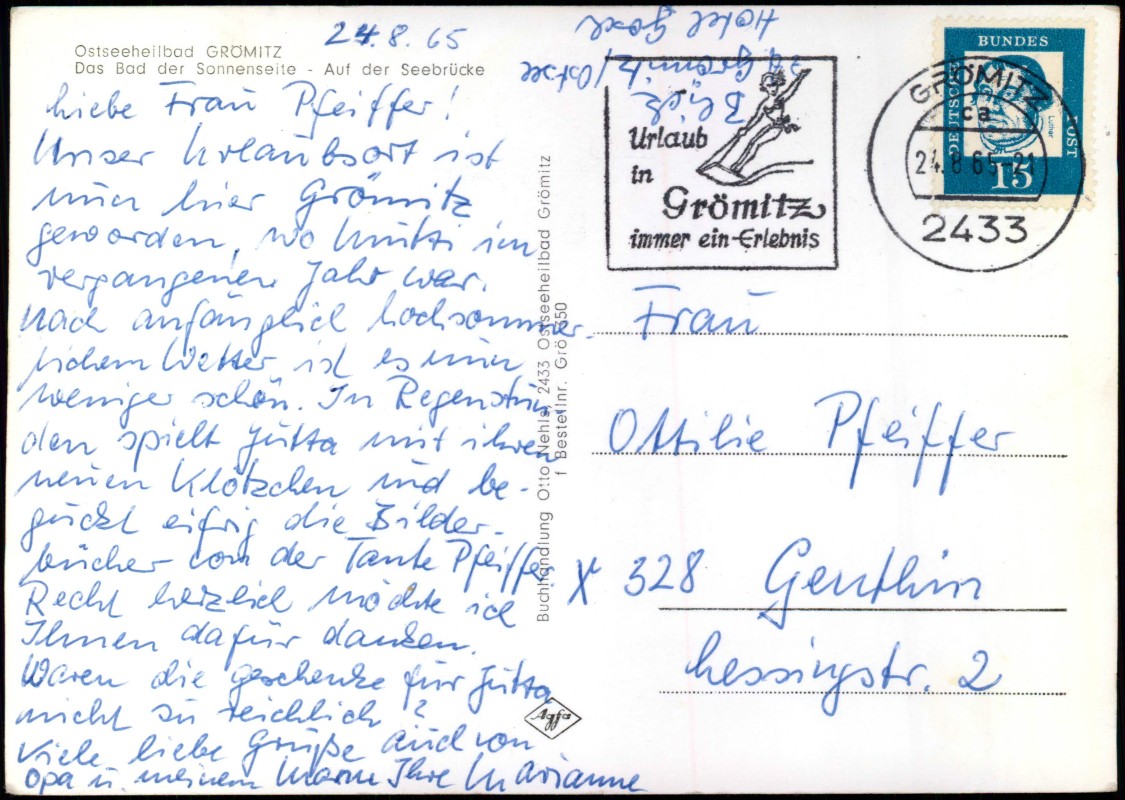 Ostseeheilbad GRÖMITZ
Das Bad der Sonnenseite - Auf der Seebrücke
24.8.65
Liebe Frau Pfeiffer!
Unser Urlaubsort ist
nun hier Grömitz
geworden, wo Mutti im
vergangenen Jahr war.
Nach anfänglich hochsommer-
lichem Wetter ist es nun
weniger schön. In Regenstun-
den spielt Jutta mit ihren
neuen Klötzchen und be-
guckt eifrig die Bilder-
bücher von der Tante Pfeiffer
Recht herzlich möchte ich
Ihnen dafür danken.
Waren die Geschenke für Jutta
nicht zu reichlich?
Viele liebe Grüße auch von
Opa u. meinem Mann Ihre Marianne
Buchhandlung Otto Nehls, 2433 Ostseeheilbad Grömitz
† Bestellnr. Grö 1350
Agfa
Grömitz/Ostsee
Hotel
Urlaub
in
Grömitz
immer ein Erlebnis
GRÖMITZ
ca
24.8.65-21
2433
DEUTSCHE
BUNDES
POST
Luther
15
Frau
Ottilie Pfeiffer
X 328 Genthin
Lessingstr. 2